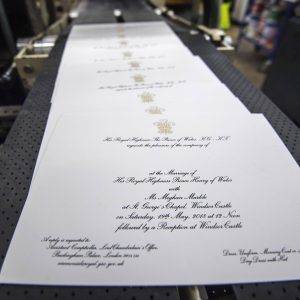 His Royal Highness The Prince of Wales, K.G., K.T.
requests the pleasure of the company of
at the Marriage of
His Royal Highness Prince Henry of Wales
with
Ms. Meghan Markle
at St. George's Chapel, Windsor Castle
on Saturday, 19th May, 2018 at 12 Noon
followed by a Reception at Windsor Castle
A reply is requested to:
Assistant Comptroller, Lord Chamberlain's Office,
Buckingham Palace, London
Dress: Uniform, Morning Coat or
Day Dress with Hat